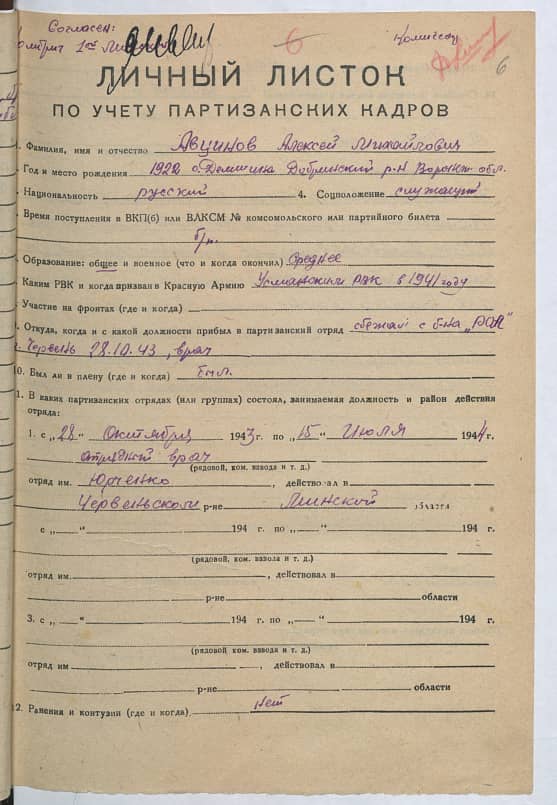 Согласен:
6
6
ЛИЧНЫЙ ЛИСТОК
ПО УЧЕТУ ПАРТИЗАНСКИХ КАДРОВ
. Фамилия, имя и отчество Авцинов Алексей Михайлович
. Год и место рождения 1922 с. Демшинка Добринский р-н Воронеж. обл.
. Национальность русский 4. Соцположение служащий
. Время поступления в ВКП(б) или ВЛКСМ № комсомольского или партийного билета
б/п.
. Образование: общее и военное (что и когда окончил) Среднее
. Каким РВК и когда призван в Красную Армию Усманским РВК в 1941 году
. Участие на фронтах (где и когда)
. Откуда, когда и с какой должности прибыл в партизанский отряд сбежал с б-на „РОА"
г. Червень 28.10.43, врач
10. Был ли в плену (где и когда) был.
1. В каких партизанских отрядах (или группах) состоял, занимаемая должность и район действия
отряда:
1. с „28" Октября 1943 г. по „15" Июля 1944 г.
отрядный врач
(рядовой, ком. взвода и т. д.)
отряд им. Юрченко , действовал в
Червеньском р-не Минской области
с „—" 194 г. по „—" 194 г.
(рядовой, ком. взвода и т. д.)
отряд им. , действовал в
р-не области
3. с „—" 194 г. по „—" 194 г.
(рядовой, ком. взвода и т. д.)
отряд им , действовал в
р-не области
2. Ранения и контузии (где и когда) нет